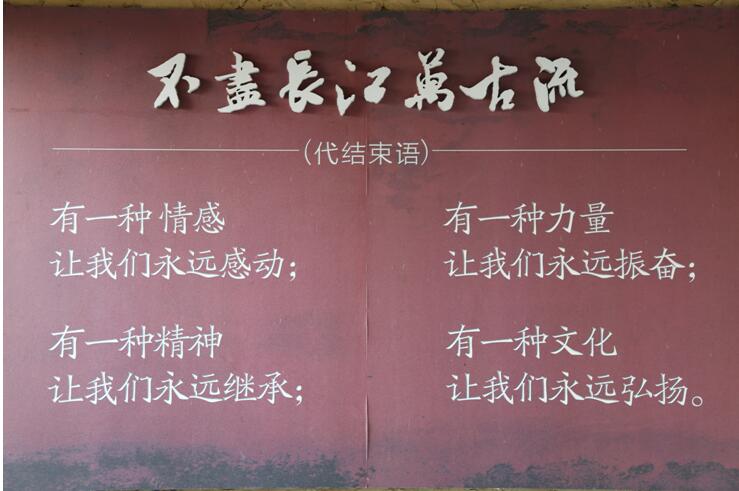 不盡長江萬古流
(代结束语)
有一种情感
让我们永远感动；
有一种力量
让我们永远振奋；
有一种精神
让我们永远继承；
有一种文化
让我们永远弘扬。